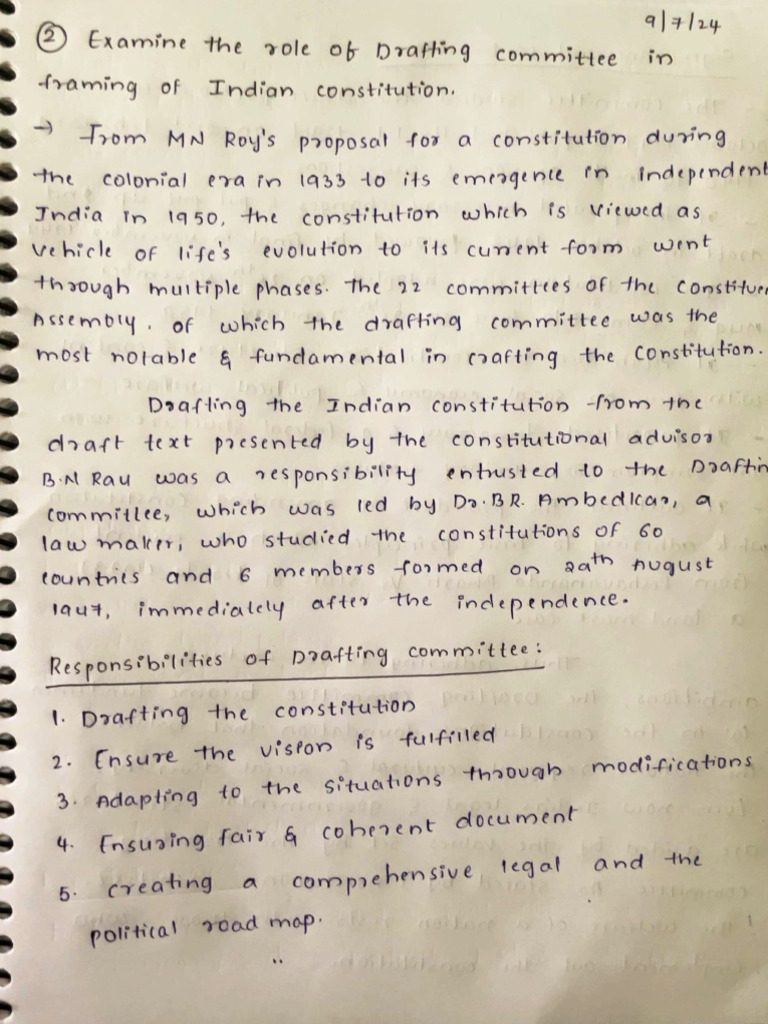 9/7/24
② Examine the role of Drafting committee in
framing of Indian constitution.
→ From MN Roy's proposal for a constitution during
the colonial era in 1933 to its emergence in independent
India in 1950, the constitution which is viewed as
vehicle of life's evolution to its current form went
through multiple phases. The 22 committees of the Constituen
Assembly. of which the drafting committee was the
most notable & fundamental in crafting the Constitution.
Drafting the Indian constitution from the
draft text presented by the constitutional advisor
B.N Rau was a responsibility entrusted to the Draftin
committee, which was led by Dr. B R. Ambedkar, a
law maker, who studied the constitutions of 60
countries and 6 members formed on 29th August
1947, immediately after the independence.
Responsibilities of Drafting committee:
1. Drafting the constitution
2. Ensure the vision is fulfilled
3. Adapting to the situations through modifications
4. Ensuring fair & coherent document
5. Creating a comprehensive legal and the
political road map.